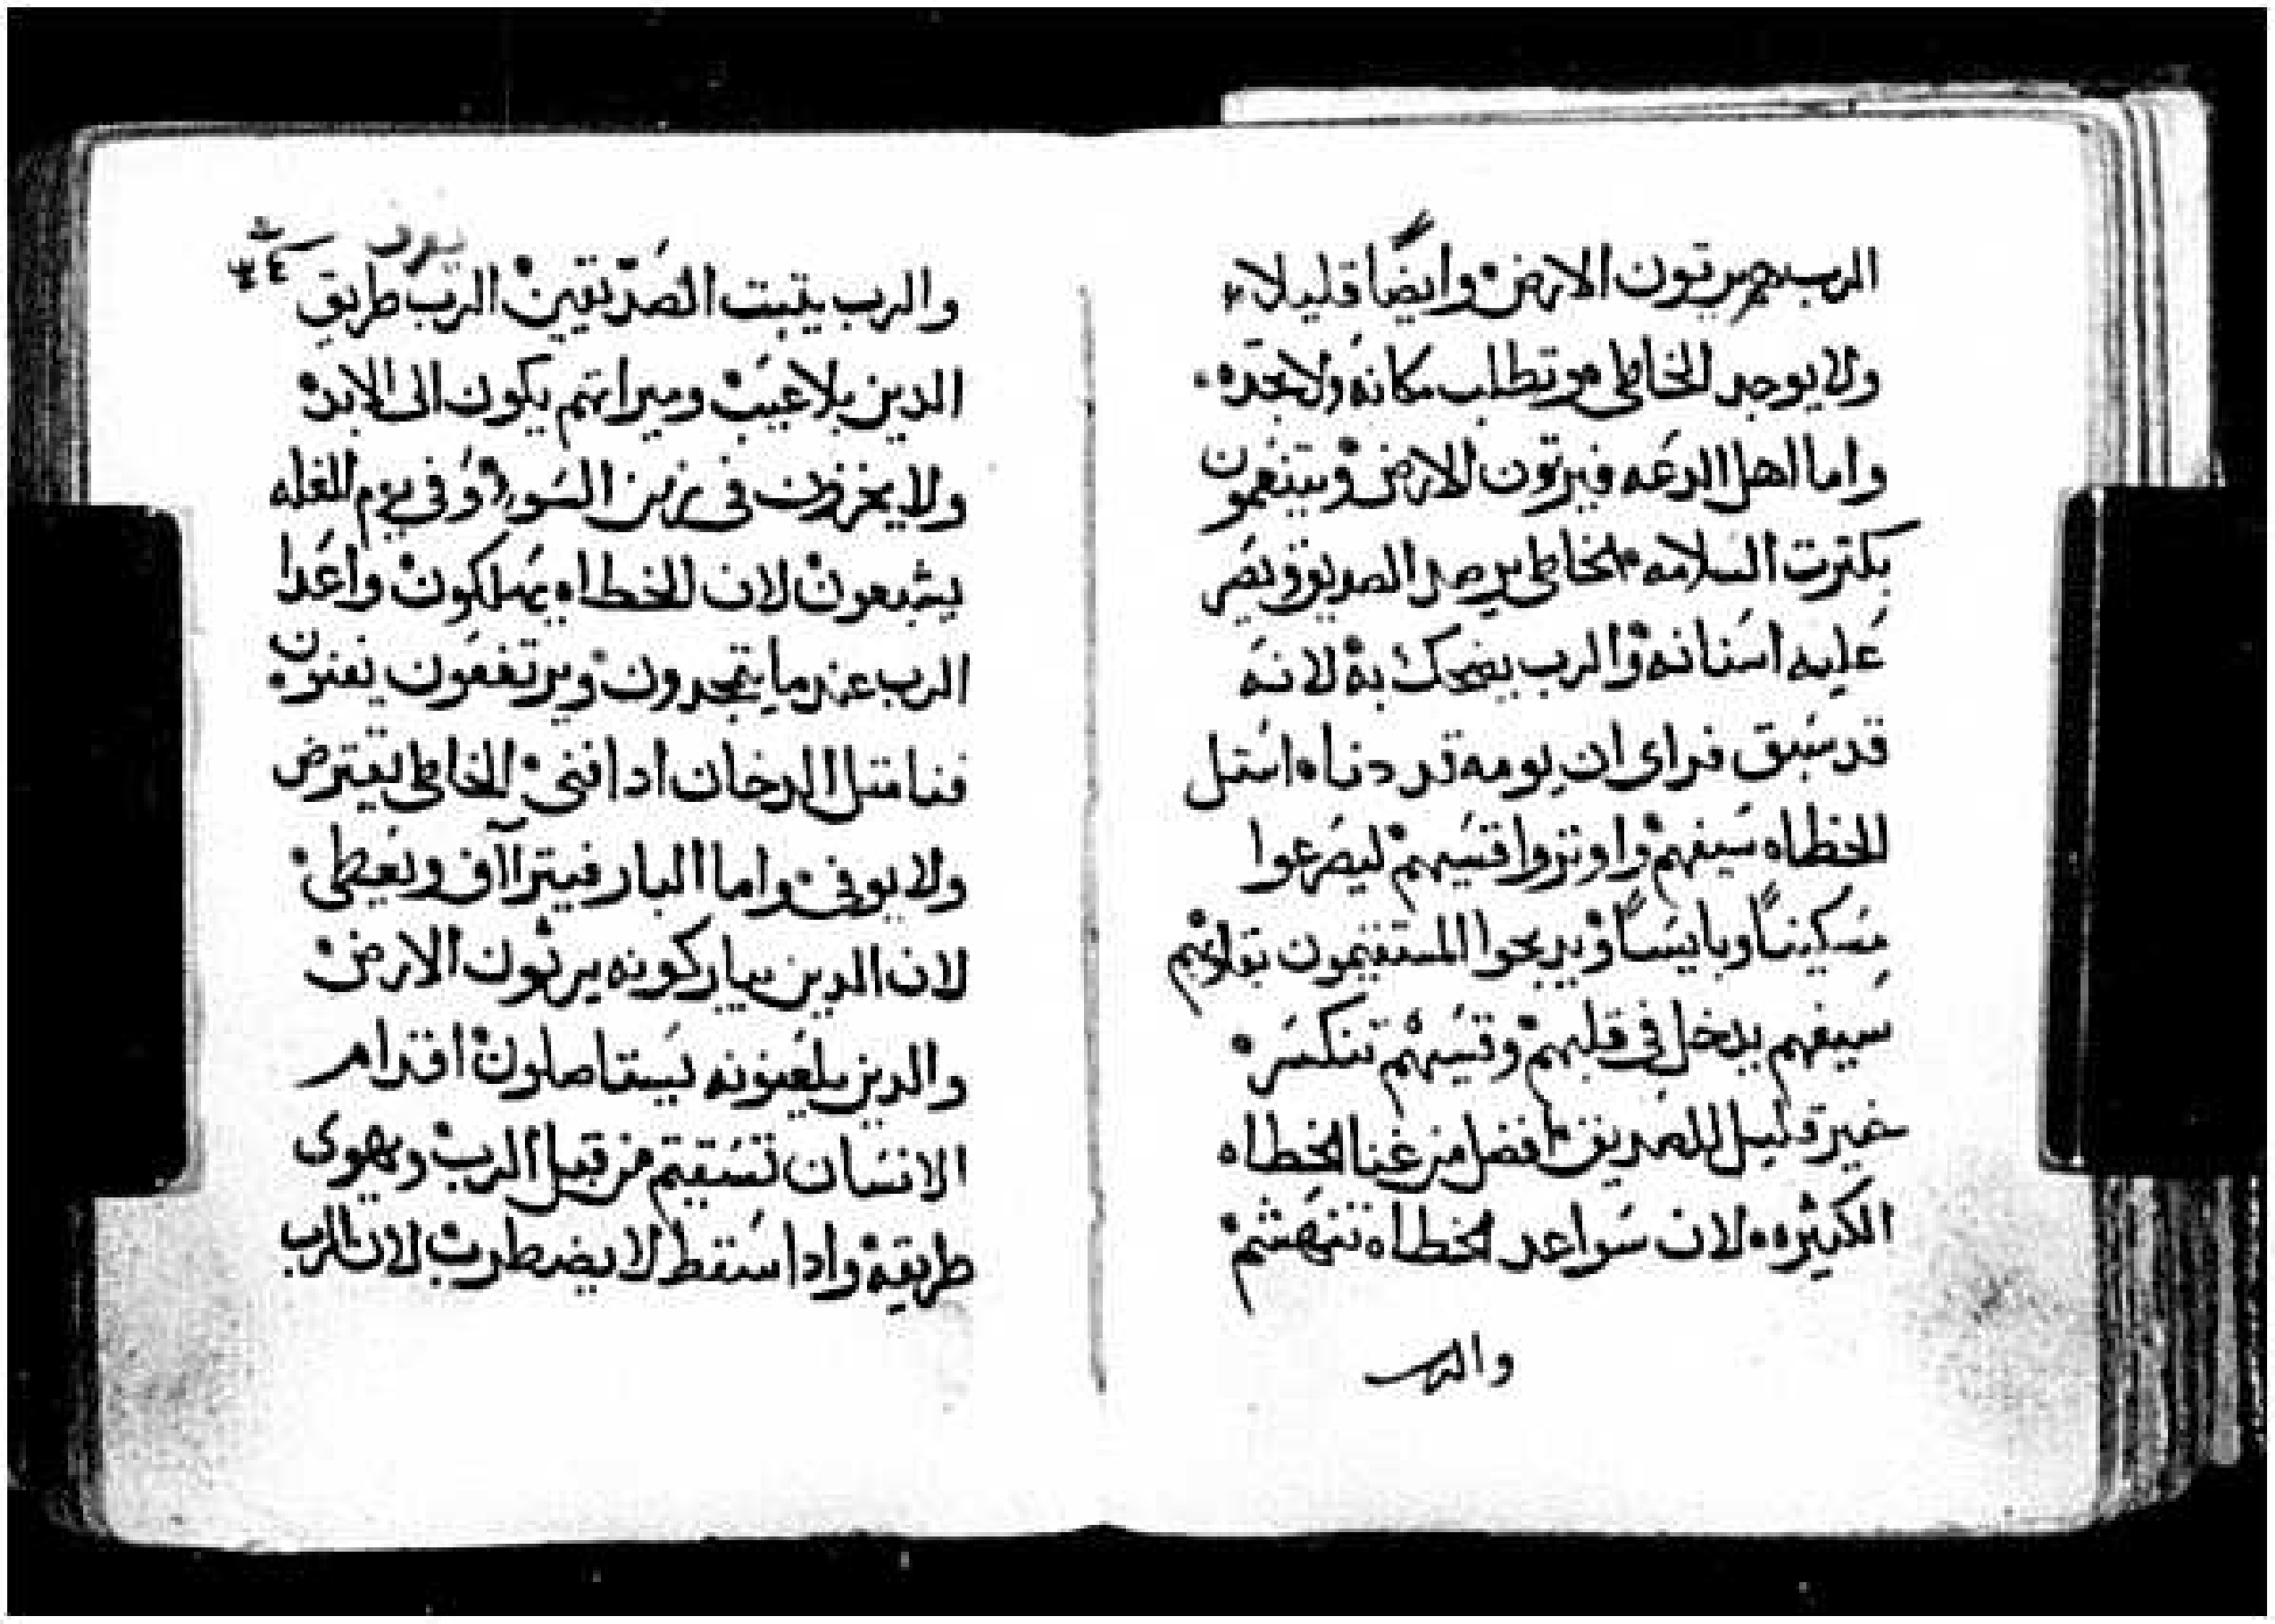 الرب هم يرتون الارض وايضًا قليلا
ولا يوجد الخاطى وتطلب مكانه ولا تجده
واما اهل الدعه فيرتون الارض ويتنعمون
بكترت السلامه الخاطى يرصد الصديق ويصر
عليه اسنانه والرب يضحك به لانه
قد سبق فراى ان يومه قد دنا استل
الخطاه سيفهم واوتروا قسيهم ليصرعوا
مسكينًا وبايسًا ويدبحوا المستقيمون بقلوبهم
سيفهم يدخل فى قلبهم وقسيهم تنكسر
خير قليل للصديق افضل من غنا الخطاه
الكثيره لان سواعد الخطاه تنهشم
والرب
والرب يتبت الصديقين الرب طريق
الدين بلا عيب وميراتهم يكون الى الابد
ولا يخزون فى زمن السوء وفى يوم الغله
يشبعون لان الخطاه يهلكون واعدا
الرب عندما يتمجدون ويرتفعون يفنون
فنا متل الدخان ادا فنى الخاطى يقترض
ولا يوفى واما البار فيتراآف ويعطى
لان الدين يباركونه يرثون الارض
والدين يلعنونه يستاصلون اقدام
الانسان تستقيم من قبل الرب ويهوى
طريقه وادا سقط لا يضطرب لان الرب